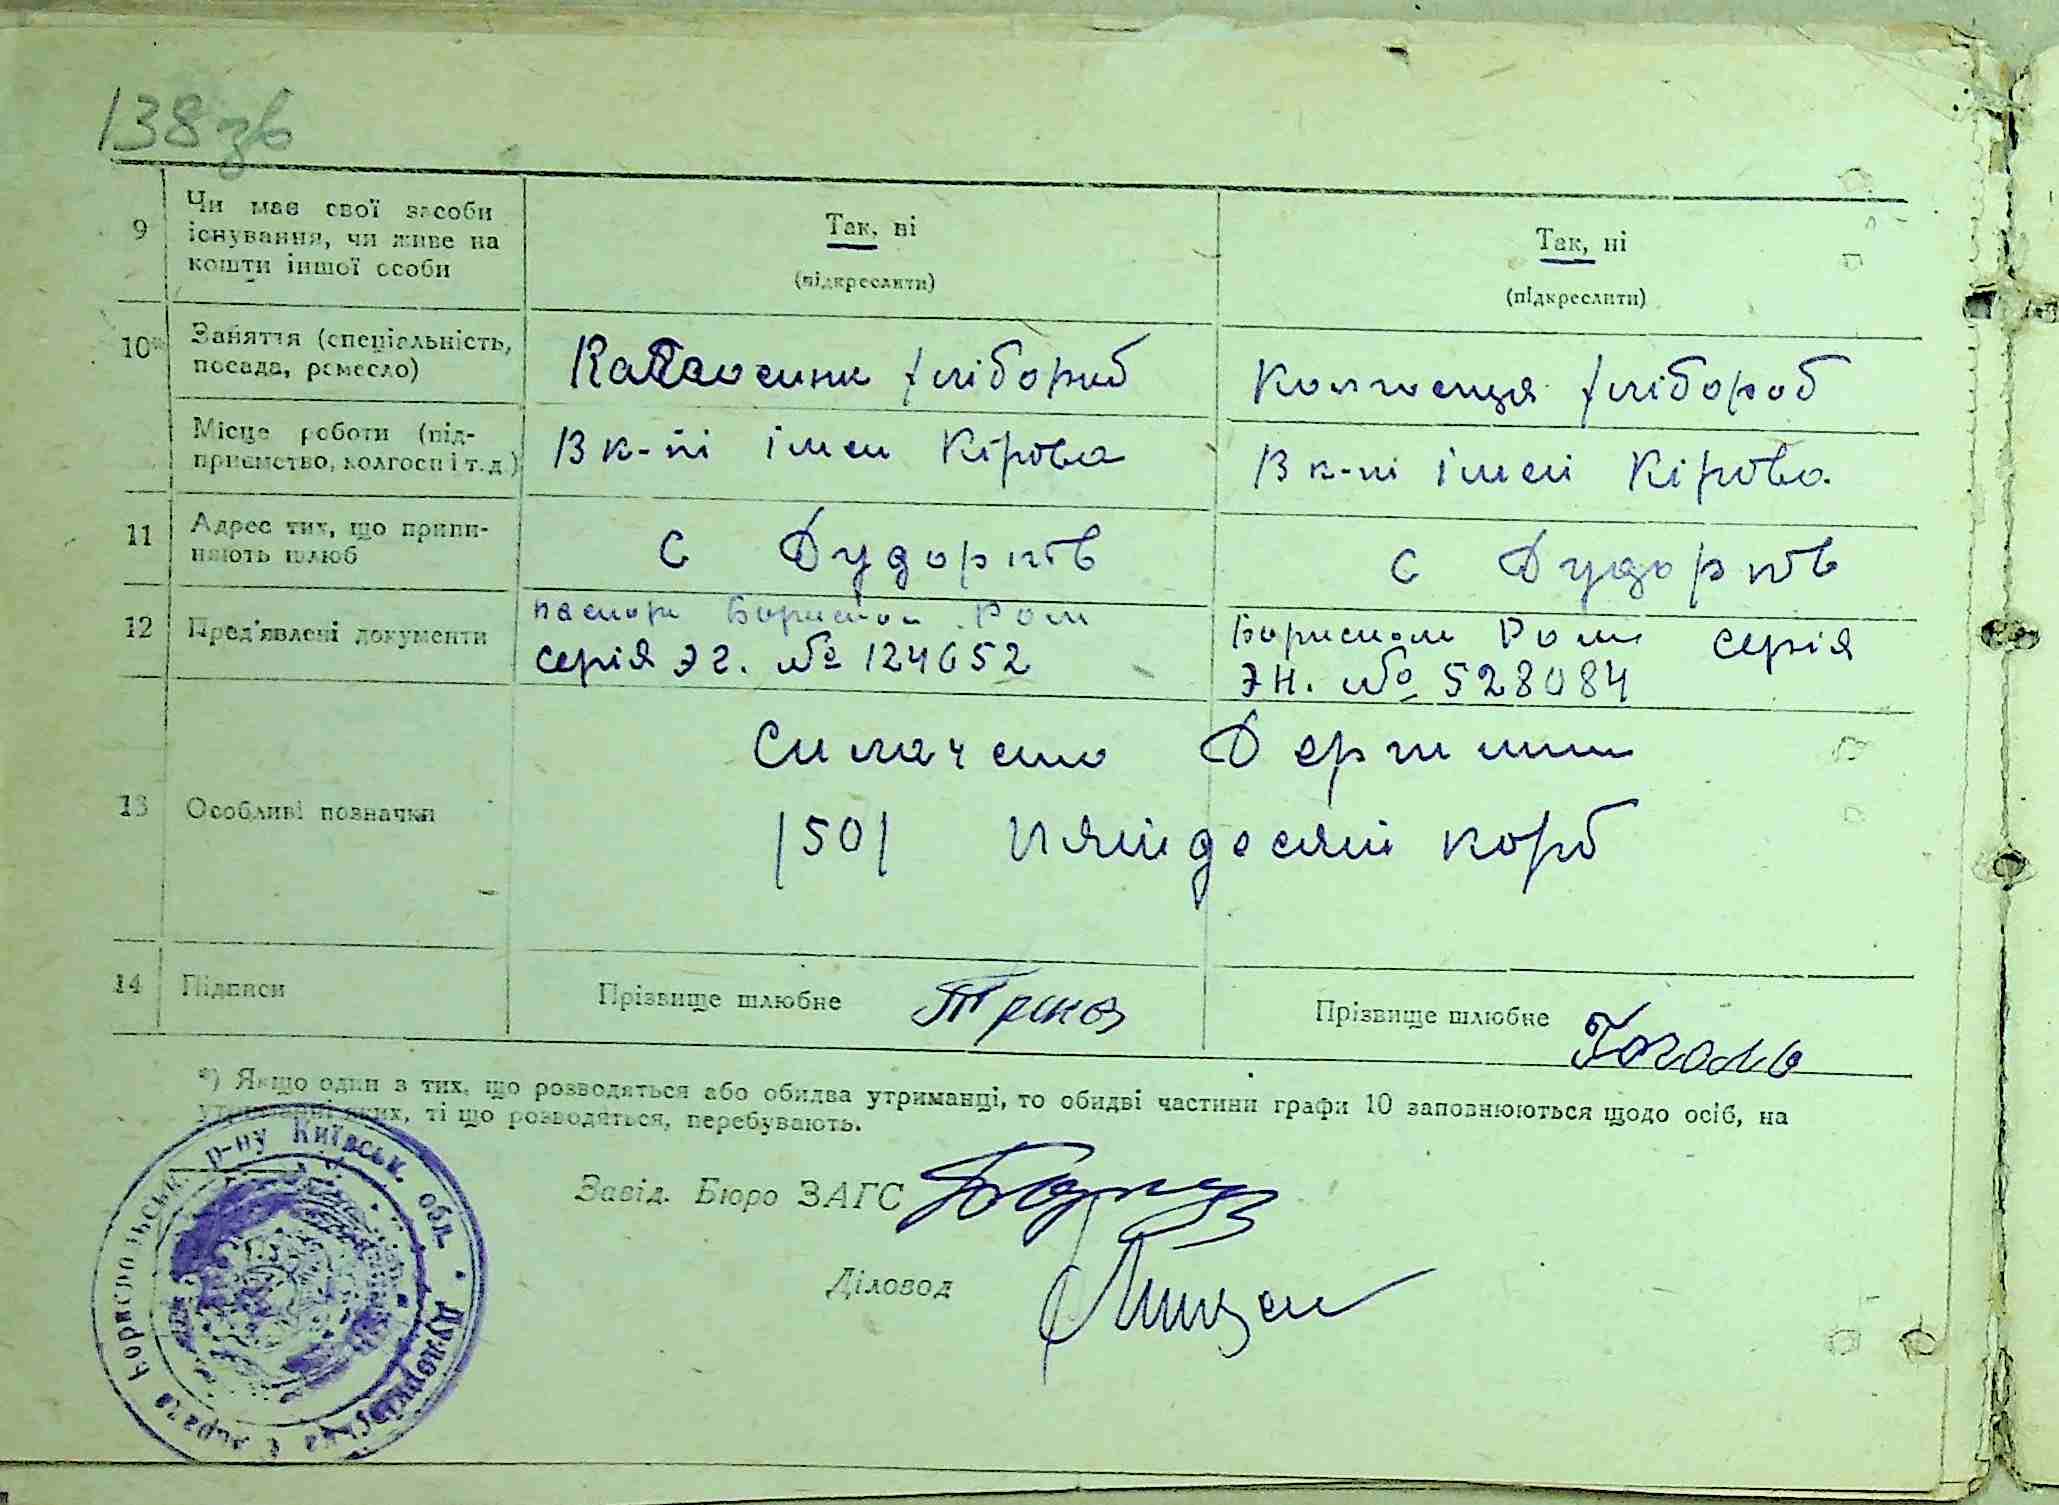 138 зв
9 Чи має свої засоби існування, чи живе на кошти іншої особи
Так, ні
(підкреслити)
Так, ні
(підкреслити)
10*
Заняття (спеціальність, посада, ремесло)
хлібороб
Колгоспця хлібороб
Місце роботи (підприємство, колгосп і т.д.)
В к-пі імен Кірова
В к-пі імені Кірова
11 Адрес тих, що припиняють шлюб
С Дударків
С Дударків
12 Пред'явлені документи
паспорт Борисполь Ром
серія ЭГ. № 124652
Бориспол Ром серія
ЭН. № 528084
13 Особливі позначки
Сплачено Держмит
/50/ пятдесят корб
14 Підписи
Прізвище шлюбне
Прізвище шлюбне Гоголь
*) Якщо один з тих, що розводяться або обидва утриманці, то обидві частини графи 10 заповнюються щодо осіб, на
утриманні яких, ті що розводяться, перебувають.
Завід. Бюро ЗАГС
Діловод
Бориспольськ. р-ну Київськ. обл. • Дударківська С